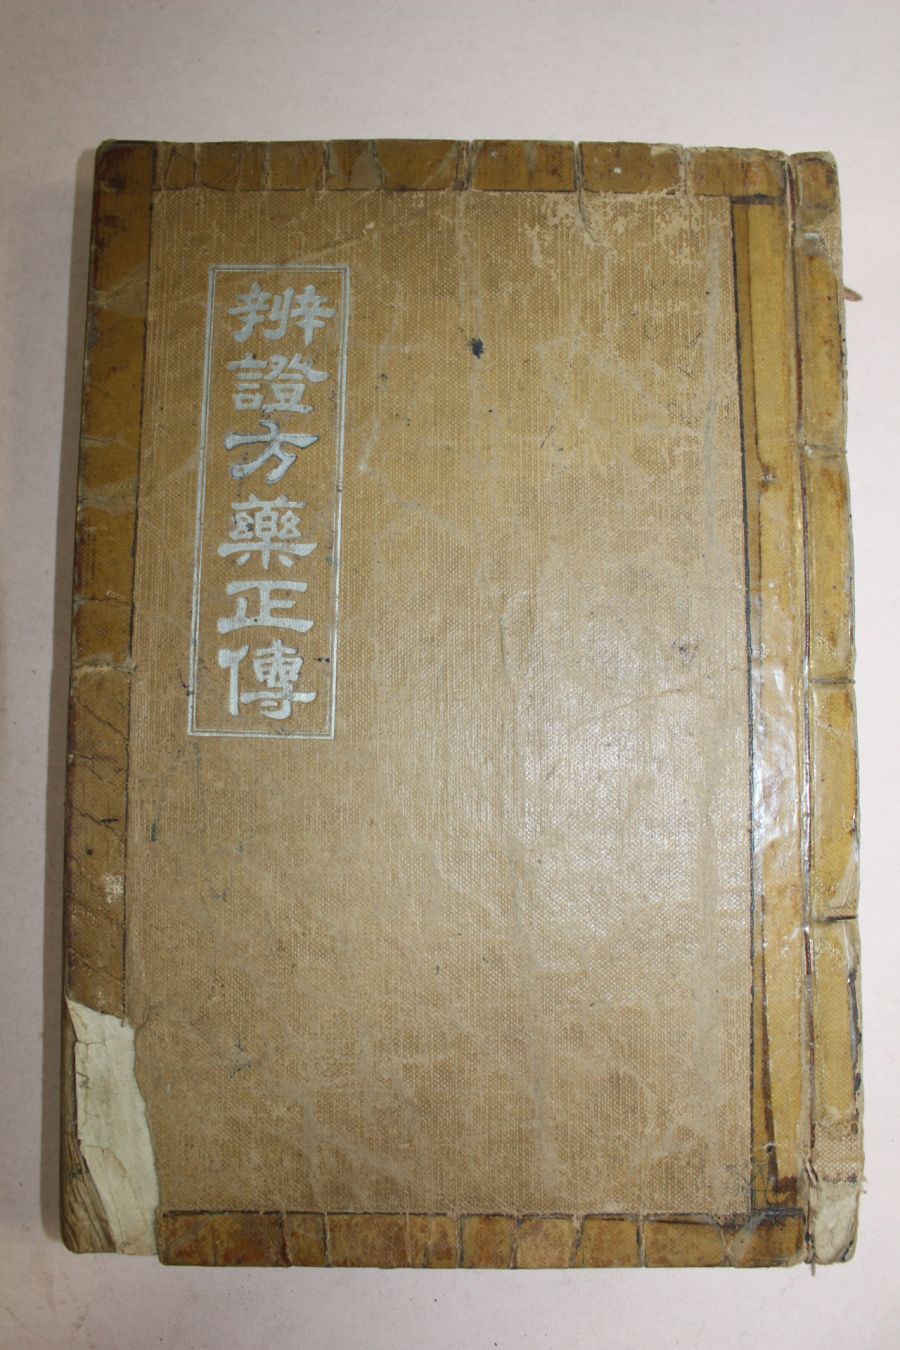 辨證方藥正傳